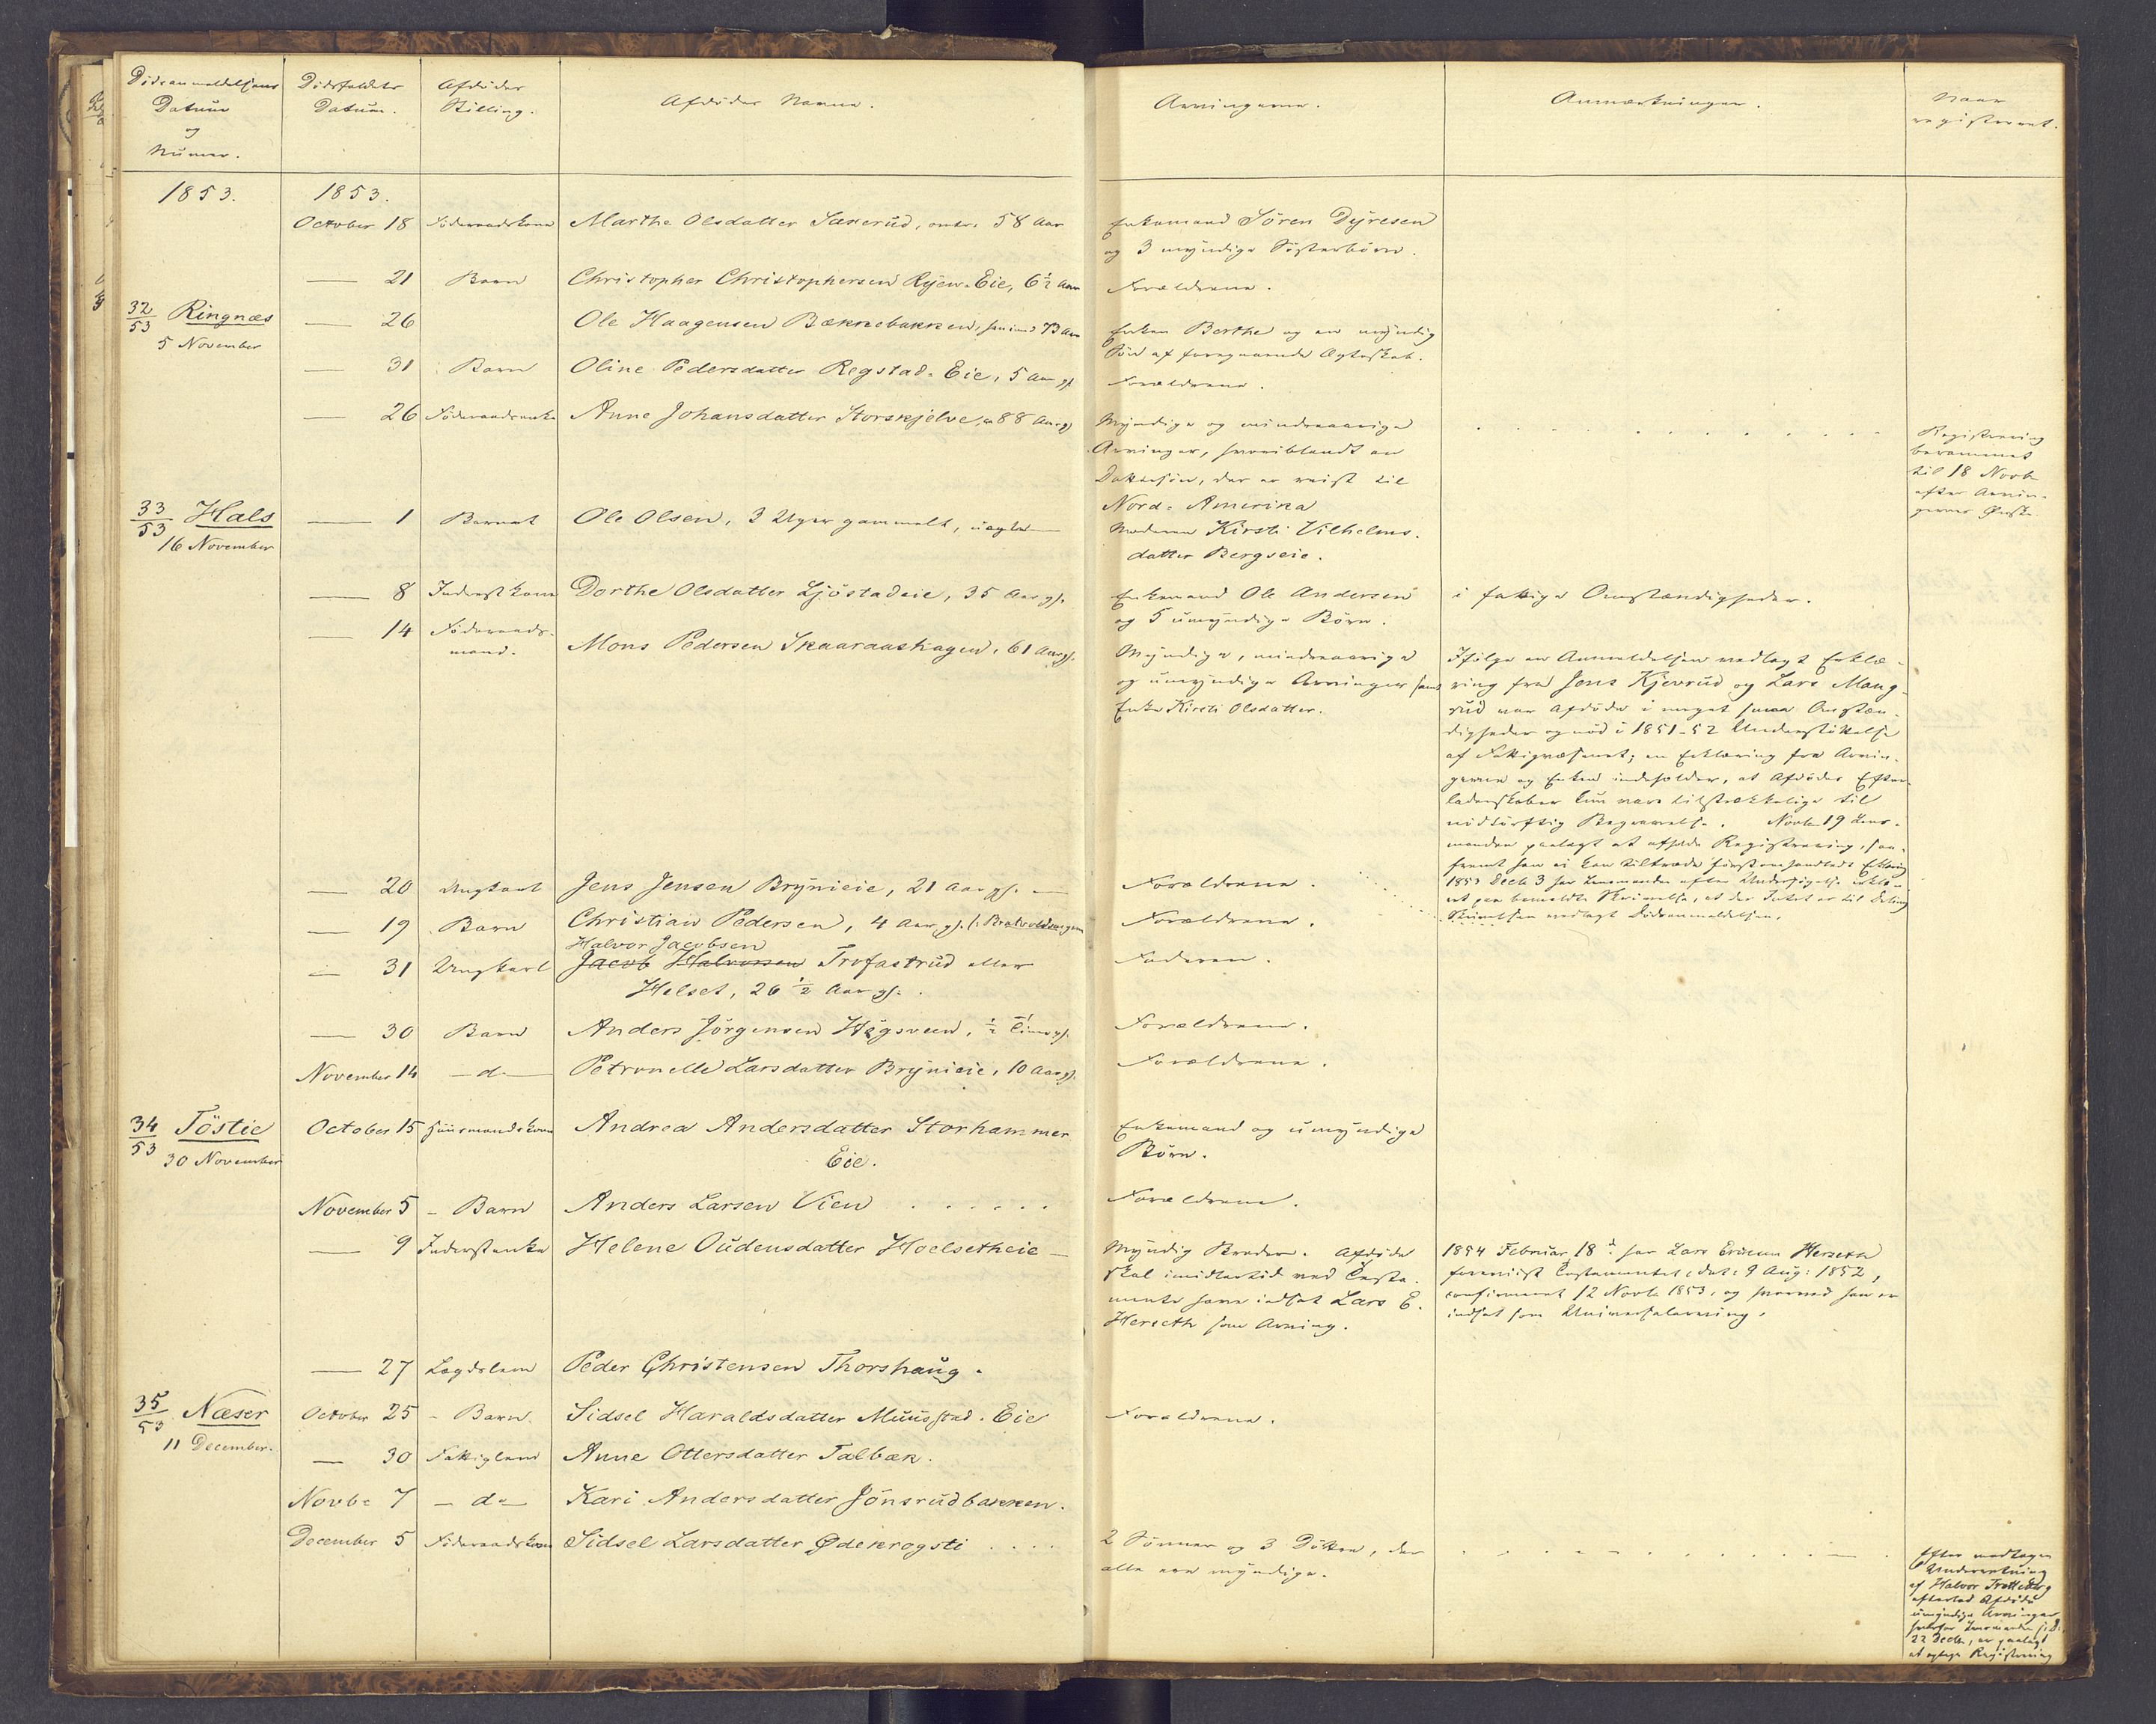 Dödsanmeldelsens
Datum
og
Numer.
Dödsfaldets
Datum.
Afdödes
Stilling.
Afdödes Navne.
Arvingerne.
Anmærkninger.
Naar
registreret.
1853.
1853.
October 18 Föderaadskone Marthe Olsdatter Saxerud, omtr. 58 Aar
Enkemand Sören Dyresen
og 3 myndige Systerbörn.
— 21 Barn Christopher Christophersen Ryen-Eie, 6½ Aar
Forældrene.
32/53 Ringnæs
5 November
— 26 Ole Haagensen Bækkebakken, 73 Aar
Enken Berthe og en myndig
Sön af foregaaende Ægteskab.
— 31 Barn Oline Pedersdatter Regstad-Eie, 5 Aar gl.
Forældrene.
— 26 Föderaadsenke Anne Johansdatter Storskjelve, 88 Aar gl
Myndige og mindreaarige
Arvinger, hvoriblandt en
Dattersön, der er reist til
Nord-Amerika
Registrering
berammet
til 18 Novbr
efter Arvin-
gernes Önske
33/53 Hals
16 November
— 1 Barnet Ole Olsen, 3 Uger gammelt, uægte —
Moderen Kirsti Vilhelms-
datter Bergseie.
— 8 Inderstkone Dorthe Olsdatter Ljöstadeie, 35 Aar gl.
Enkemand Ole Andersen
og 5 umyndige Börn.
i fattige Omstændigheder.
— 14 Föderaads-
mand. Mons Pedersen Skaaraashagen, 61 Aar gl.
Myndige, mindreaarige
og umyndige Arvinger samt
Enke Kirsti Olsdatter.
Ifölge en Anmeldelsen vedlagt Erklæ-
ring fra Jens Kjevrud og Lars Mang-
rud var Afdöde i meget smaa Omstæn-
digheder og nöd i 1851-52 Understöttelse
af Fattigvæsenet; en Erklæring fra Arvin-
gerne og Enken indeholder, at Afdödes Efter-
ladenskaber kun vare tilstrækkelige til
nödtörftig Begravelse. Novbr 19 Lens-
manden paalagt at afholde Registrering, saa-
fremt han ei kan tiltræde förstomhandlede Erklæring
1853 Decbr 3 har Lensmanden efter Undersögelse erklæ-
ret paa bemeldte Skrivelse, at der Intet er til Deling
Skrivelsen vedlagt Dödsanmeldelsen.
— 20 Ungkarl Jens Jensen Brynieie, 21 Aar gl. —
Forældrene.
— 19 Barn Christian Pedersen, 4 Aar gl.
Forældrene.
Halvor Jacobsen
— 31 Ungkarl Jacob Halvorsen Trofastrud eller
Helset, 26½ Aar gl.
Faderen.
— 30 Barn Anders Jörgensen Högsveen, ½ Time gl.
Forældrene.
November 14 — do — Petronelle Larsdatter Brynieie, 10 Aar gl.
Forældrene.
34/53 Töstie
30 November
October 15 Huusmandskone Andrea Andersdatter Storhammer
Eie.
Enkemand og umyndige
Börn.
November 5 - Barn Anders Larsen Vien . . . . . .
Forældrene.
— 9 Inderstenke Helene Oudensdatter Hoelsetheie —
Myndig Broder. Afdöde
skal imidlertid ved Testa-
mente have indsat Lars E.
Herseth som Arving.
1854 Februar 18d. har Lars Ericsen Herseth
foreviist Testamentet, dat. 9 Aug: 1852,
confirmeret 12 Novbr 1853, og hvorved han er
indsat som Universalarving.
— 27 Lægdslem Peder Christensen Thorshaug.
35/53 Næser
11 December.
October 25 - Barn Sidsel Haraldsdatter Muusstad-Eie
Forældrene.
— 30 Fattiglem Anne Ottersdatter Talbæk.
Novbr 7 — do — Kari Andersdatter Jönsrudbakken.
December 5 Föderaadskone Sidsel Larsdatter Ødekrogsti . . . .
2 Sönner og 3 Döttre, der
alle ere myndige.
Efter modtagen
Underretning
af Halvor Trætteberg
efterlod Afdöde
umyndige Arvinger
hvorfor Lensmanden
22 Decbr, er paalagt
at optage Registrering